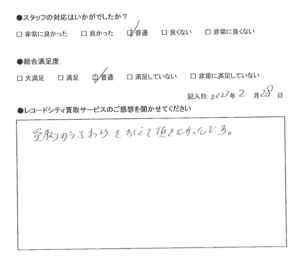 ●スタッフの対応はいかがでしたか？
□ 非常に良かった □ 良かった ☑ 普通 □ 良くない □ 非常に良くない
●総合満足度
□ 大満足 □ 満足 ☑ 普通 □ 満足していない □ 非常に満足していない
記入日: 2023年 2 月 28 日
●レコードシティ買取サービスのご感想を聞かせてください
買取りのうちわけをおしえて頂きたかったです。